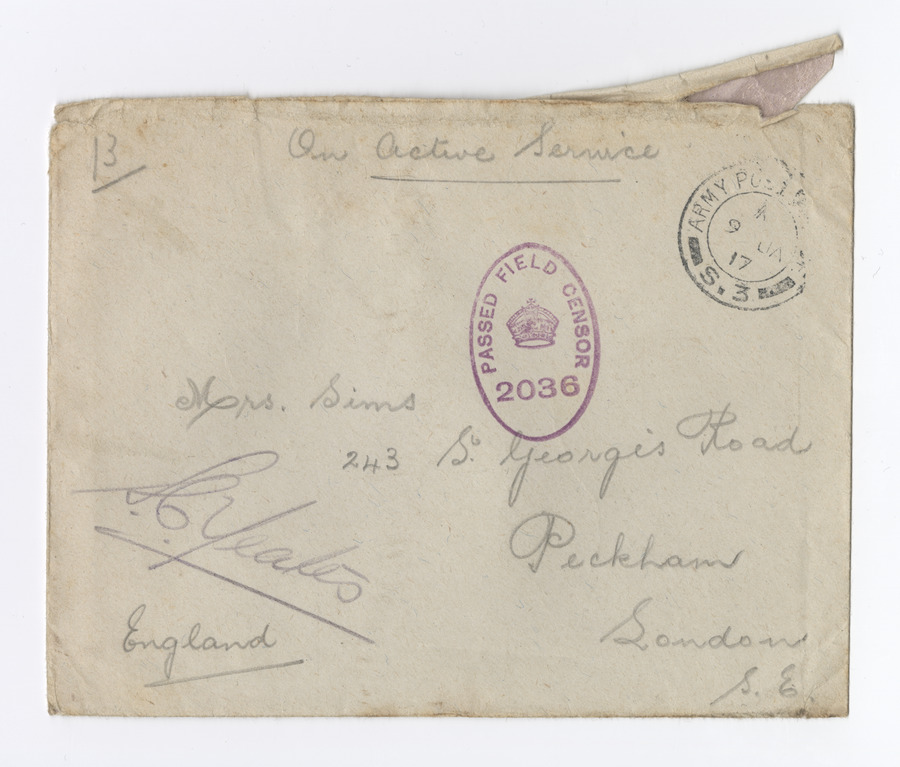 13
On Active Service
ARMY POST
A
9 JA
17
S.3
PASSED FIELD CENSOR
2036
Mrs. Sims
243 St. George's Road
Peckham
London
S. E
England